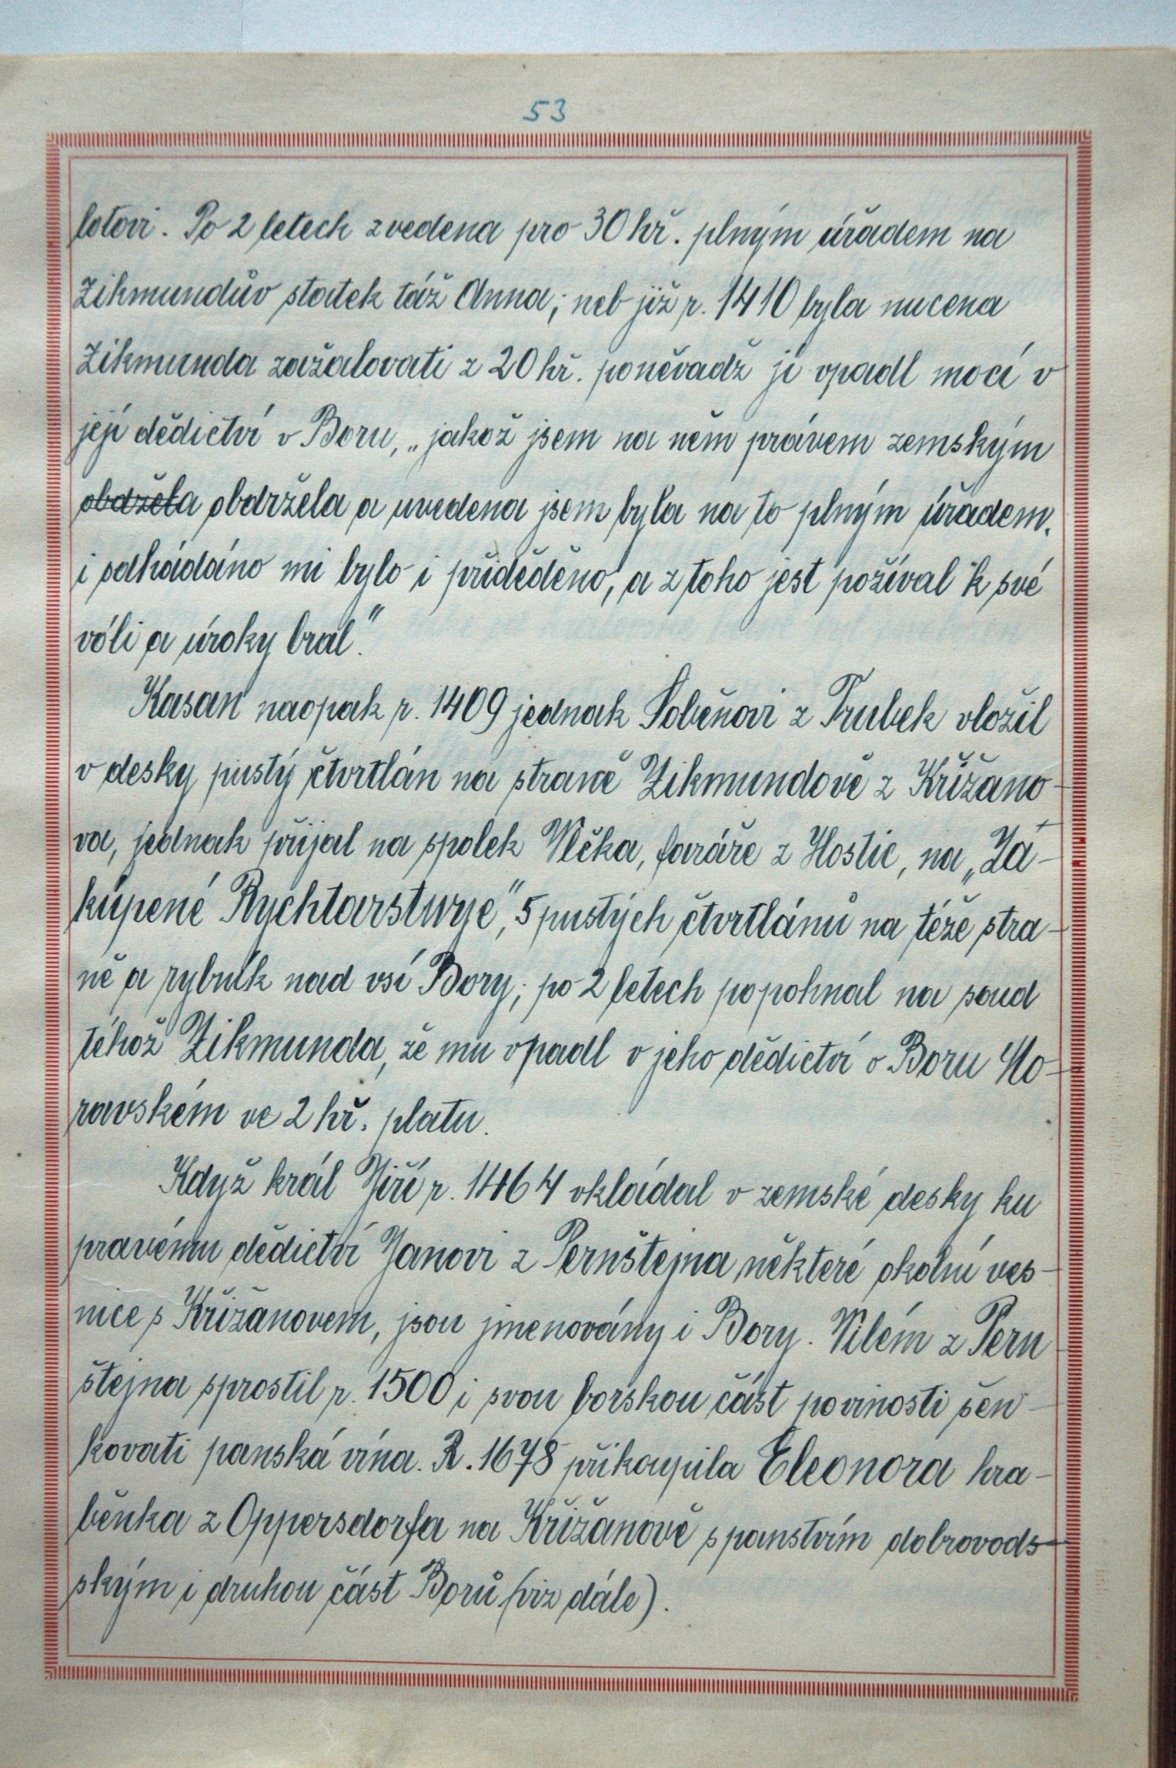 53
lotovi. Po 2 letech zvedena pro 30 hř. plným úřadem na
Zikmundův statek táž Anna; neb již r. 1410 byla nucena
Zikmunda zažalovati z 20 hř. poněvadž jí vpadl mocí v
její dědictví v Boru, „jakož jsem na něm právem zemským
obdržela obdržela a uvedena jsem byla na to plným úřadem.
i odhádáno mi bylo i přiděděno, a z toho jest požíval k své
vóli a úroky bral."
Kasan naopak r. 1409 jednak Soběňovi z Trubek vložil
v desky pustý čtvrtlán na straně Zikmundově z Křižano-
va, jednak přijal na spolek Vlčka, faráře z Hostic, na „Zá-
kúpené Rychtarstwye", 5 pustých čtvrtlánů na téže stra-
ně a rybník nad vsí Bory; po 2 letech popohnal na soud
téhož Zikmunda, že mu vpadl v jeho dědictví v Boru Mo-
ravském ve 2 hř. platu.
Když král Jiří r. 1464 vkládal v zemské desky ku
pravému dědictví Janovi z Pernštejna některé okolní ves-
nice s Křižanovem, jsou jmenovány i Bory. Vilém z Pern-
štejna sprostil r. 1500 i svou borskou část povinosti šen-
kovati panská vína. R. 1678 přikoupila Eleonora hra-
běnka z Oppersdorfa na Křižanově s panstvím dobrovods-
ským i druhou část Borů (viz dále).